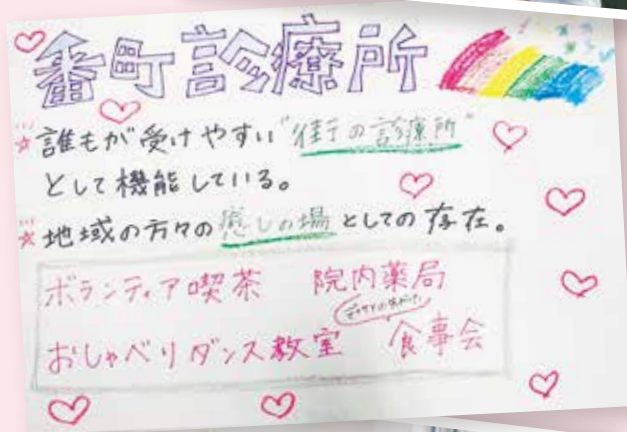 番町診療所
☆誰もが受けやすい"街の診療所"
として機能している。
☆地域の方々の癒しの場としての存在。
ボランティア喫茶 院内薬局
おしゃべりダンス教室 食事会